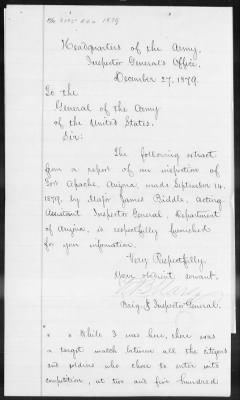 Headquarters of the Army.
Inspector General's Office.
December 27, 1879.
To the
General of the Army
of the United States.
Sir:
The following extract
from a report of an inspection of
Fort Apache, Arizona, made September 14.
1879, by Major James Biddle, Acting
Assistant Inspector General, Department
of Arizona, is respectfully furnished
for your information.
Very Respectfully,
Your obedient servant.
Brig. & Inspector General.
" " While I was here, there was
a target match between all the citizens
and soldiers who chose to enter into
competition, at two and five hundred